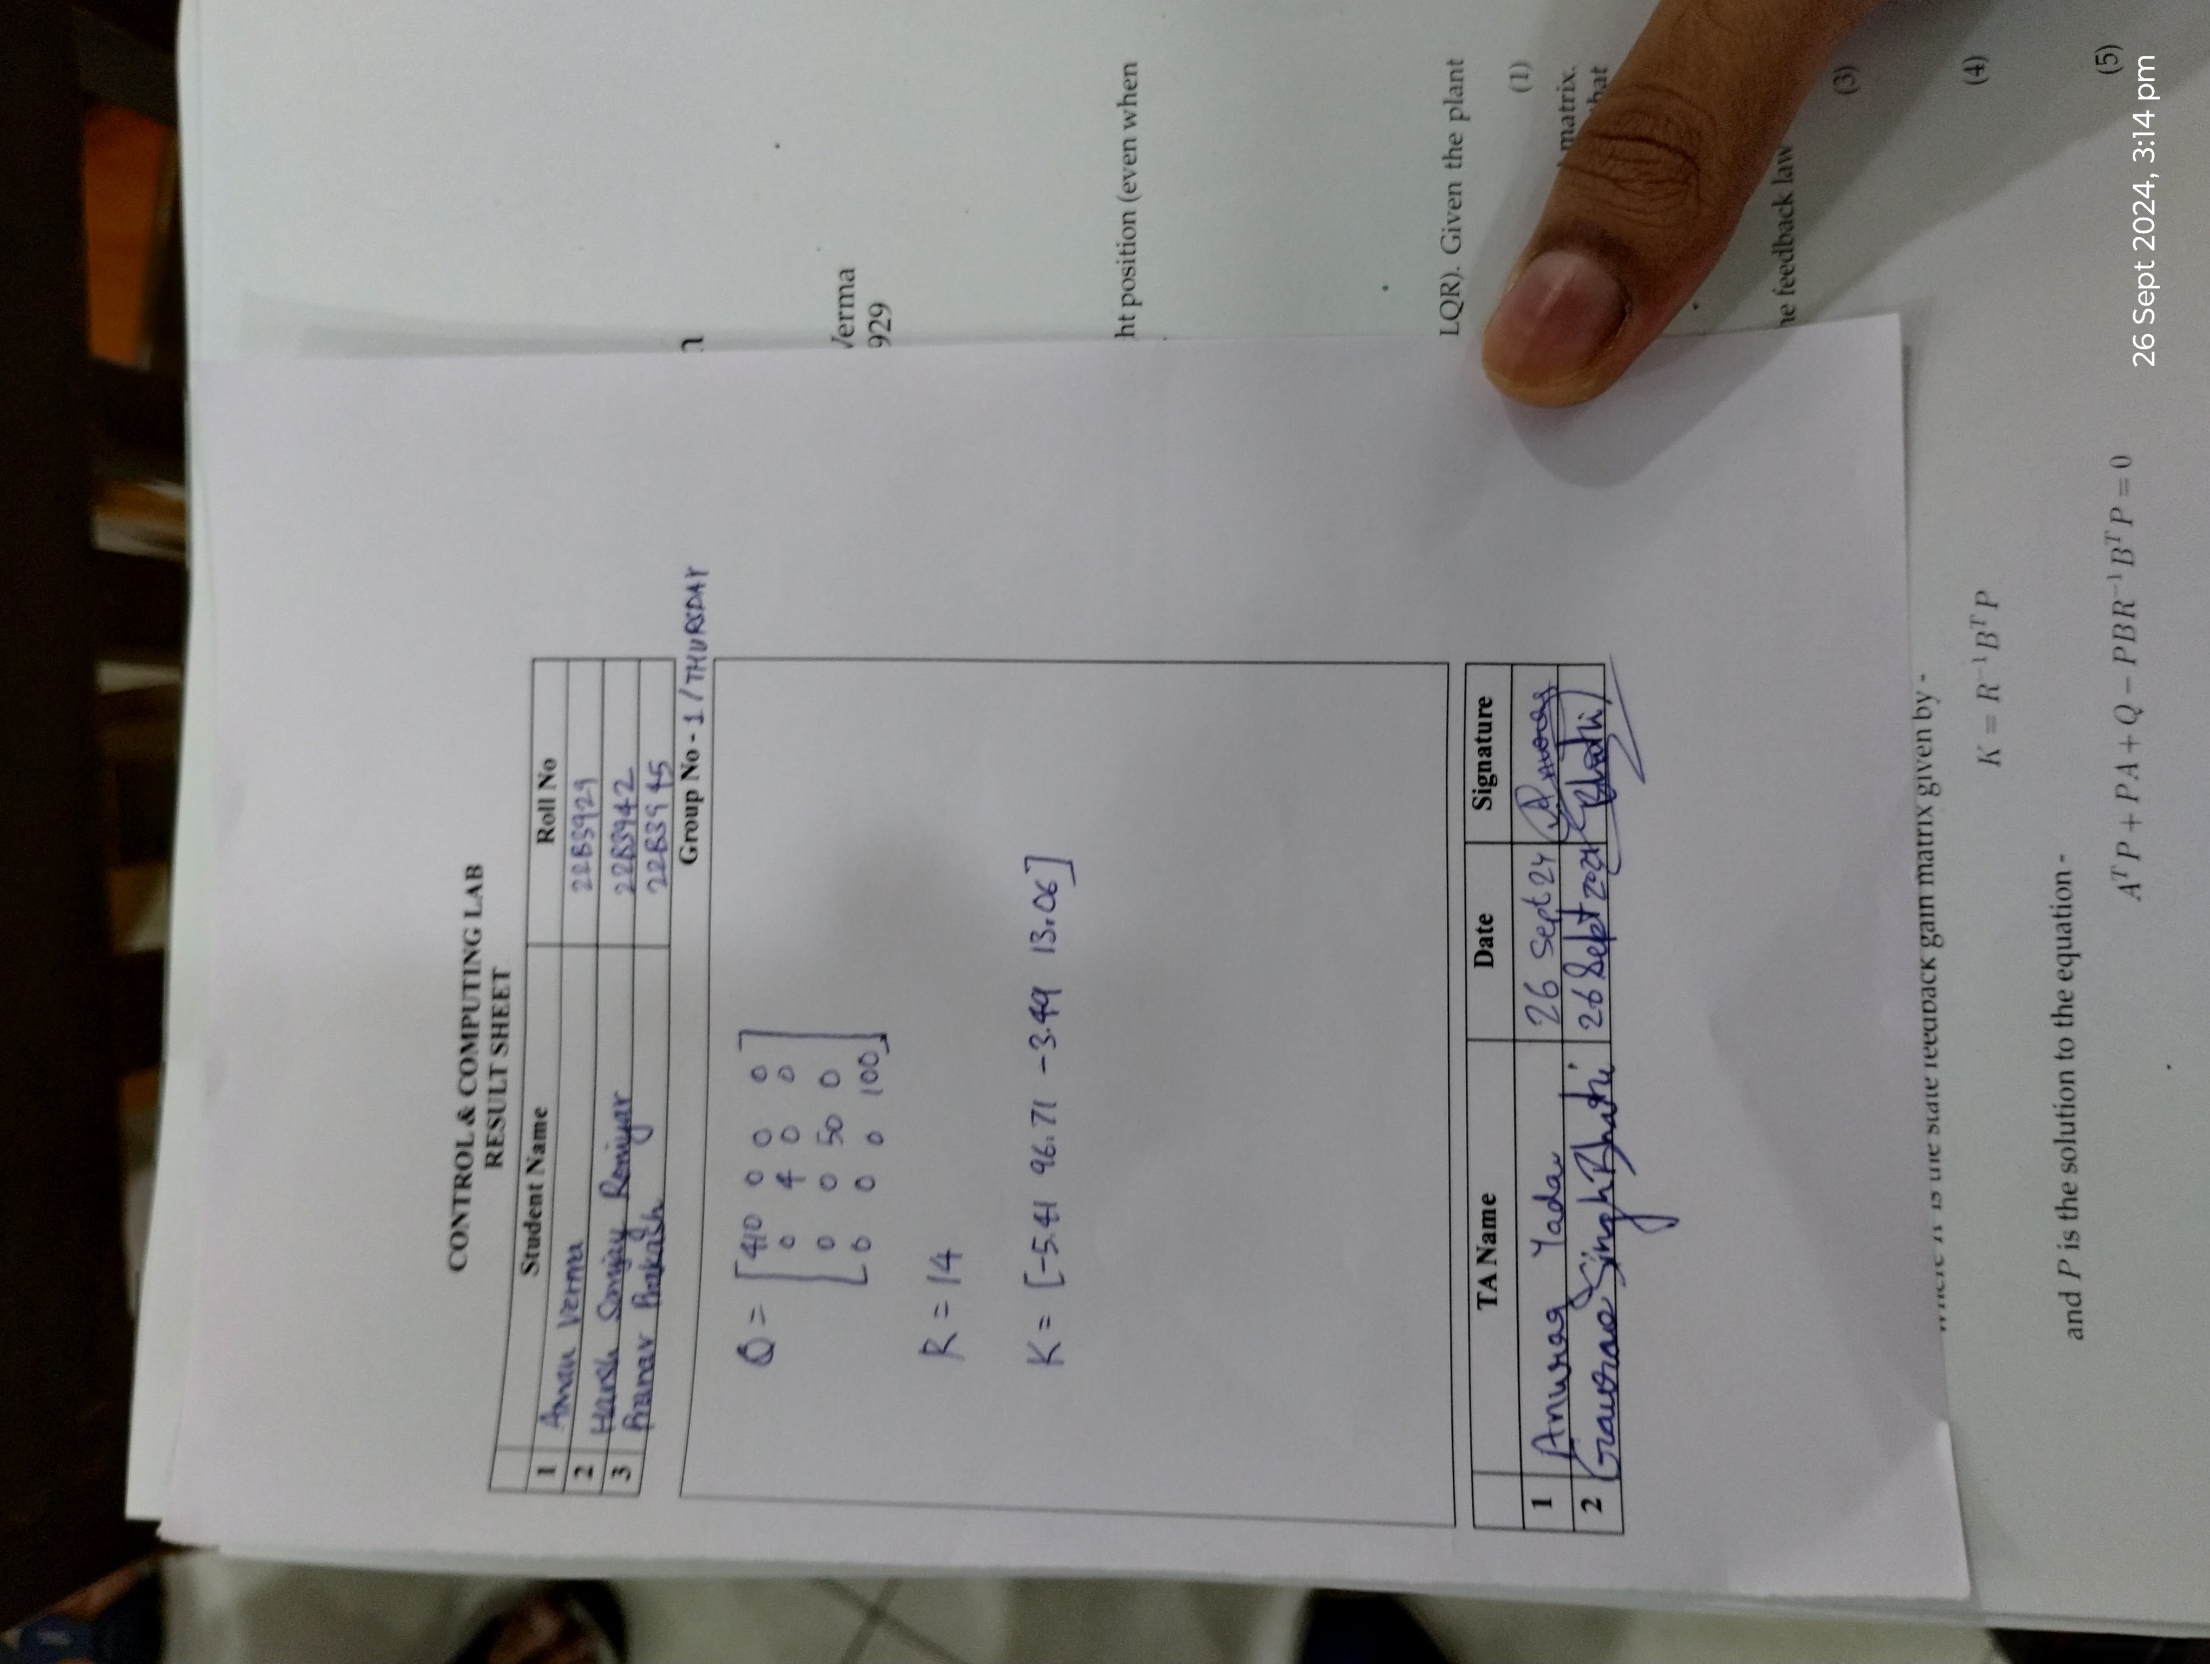 CONTROL & COMPUTING LAB
RESULT SHEET
Student Name Roll No
1 Aman Verma 22B3929
2 Harsh Sanjay Roniyar 22B3942
3 Pranav Prakash 22B3945
Group No - 1 / THURSDAY
Q = [410 0 0 0
0 4 0 0
0 0 50 0
0 0 0 100]
R = 14
K = [-5.41 96.71 -3.49 13.06]
TA Name Date Signature
1 Anurag Yadav 26 Sept 24 Anurag
2 Gaurao Singh Bhati 26 Sept 2024 Bhati
Verma
929
ht position (even when
LQR). Given the plant
(1)
matrix.
hat
he feedback law
(3)
where K is the state feedback gain matrix given by -
K = R⁻¹BᵀP (4)
and P is the solution to the equation -
AᵀP + PA + Q − PBR⁻¹BᵀP = 0 (5)
26 Sept 2024, 3:14 pm